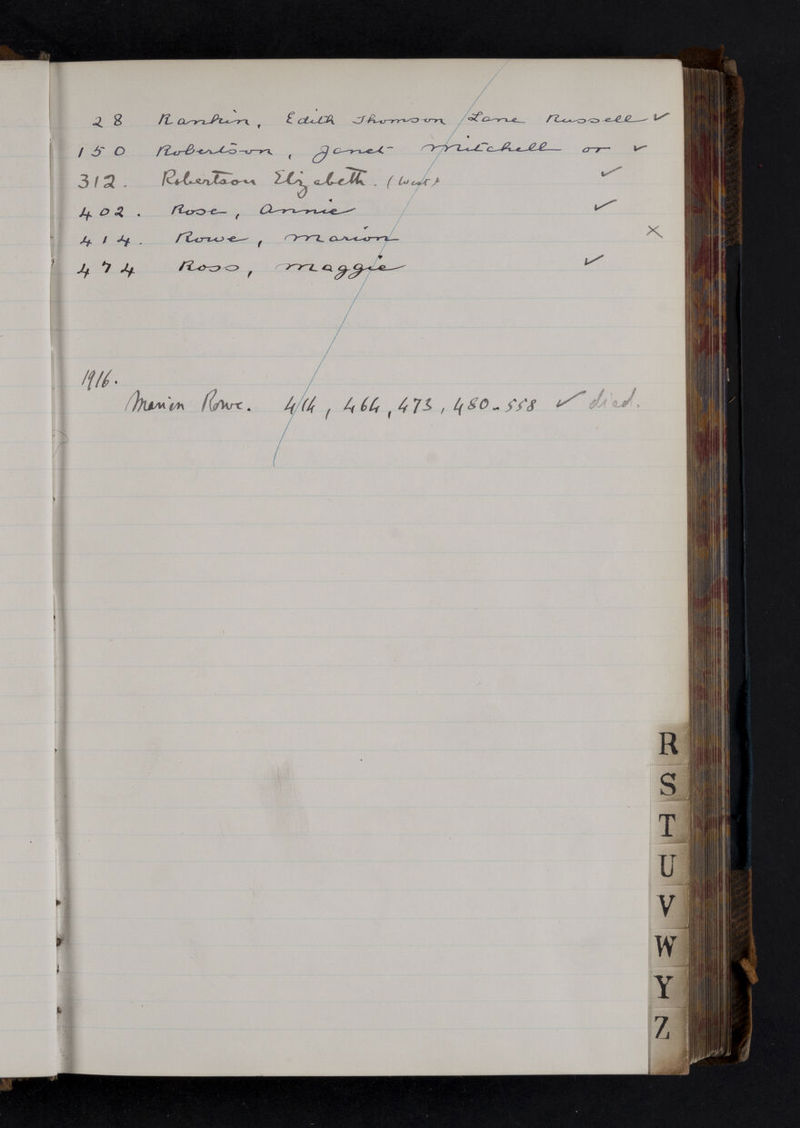 28 Rankin, Edith Thomson Lane Russell ✓
150 Robertson, Janet Mitchell or ✓
312. Robertson Elizabeth. (West) ✓
402. Rose, Annie ✓
414. Rowe, Marion ×
474 Ross, Maggie ✓
1916.
Marion Rowe. 414, 464, 473, 480-558 ✓ died.
R
S
T
U
V
W
Y
Z